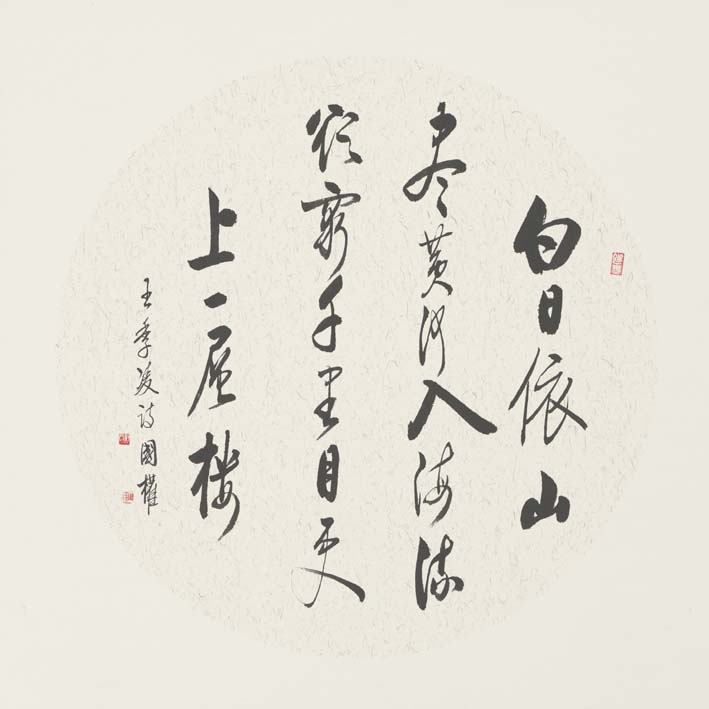 白日依山
尽黄河入海流
欲窮千里目更
上一层楼
王季凌诗國權